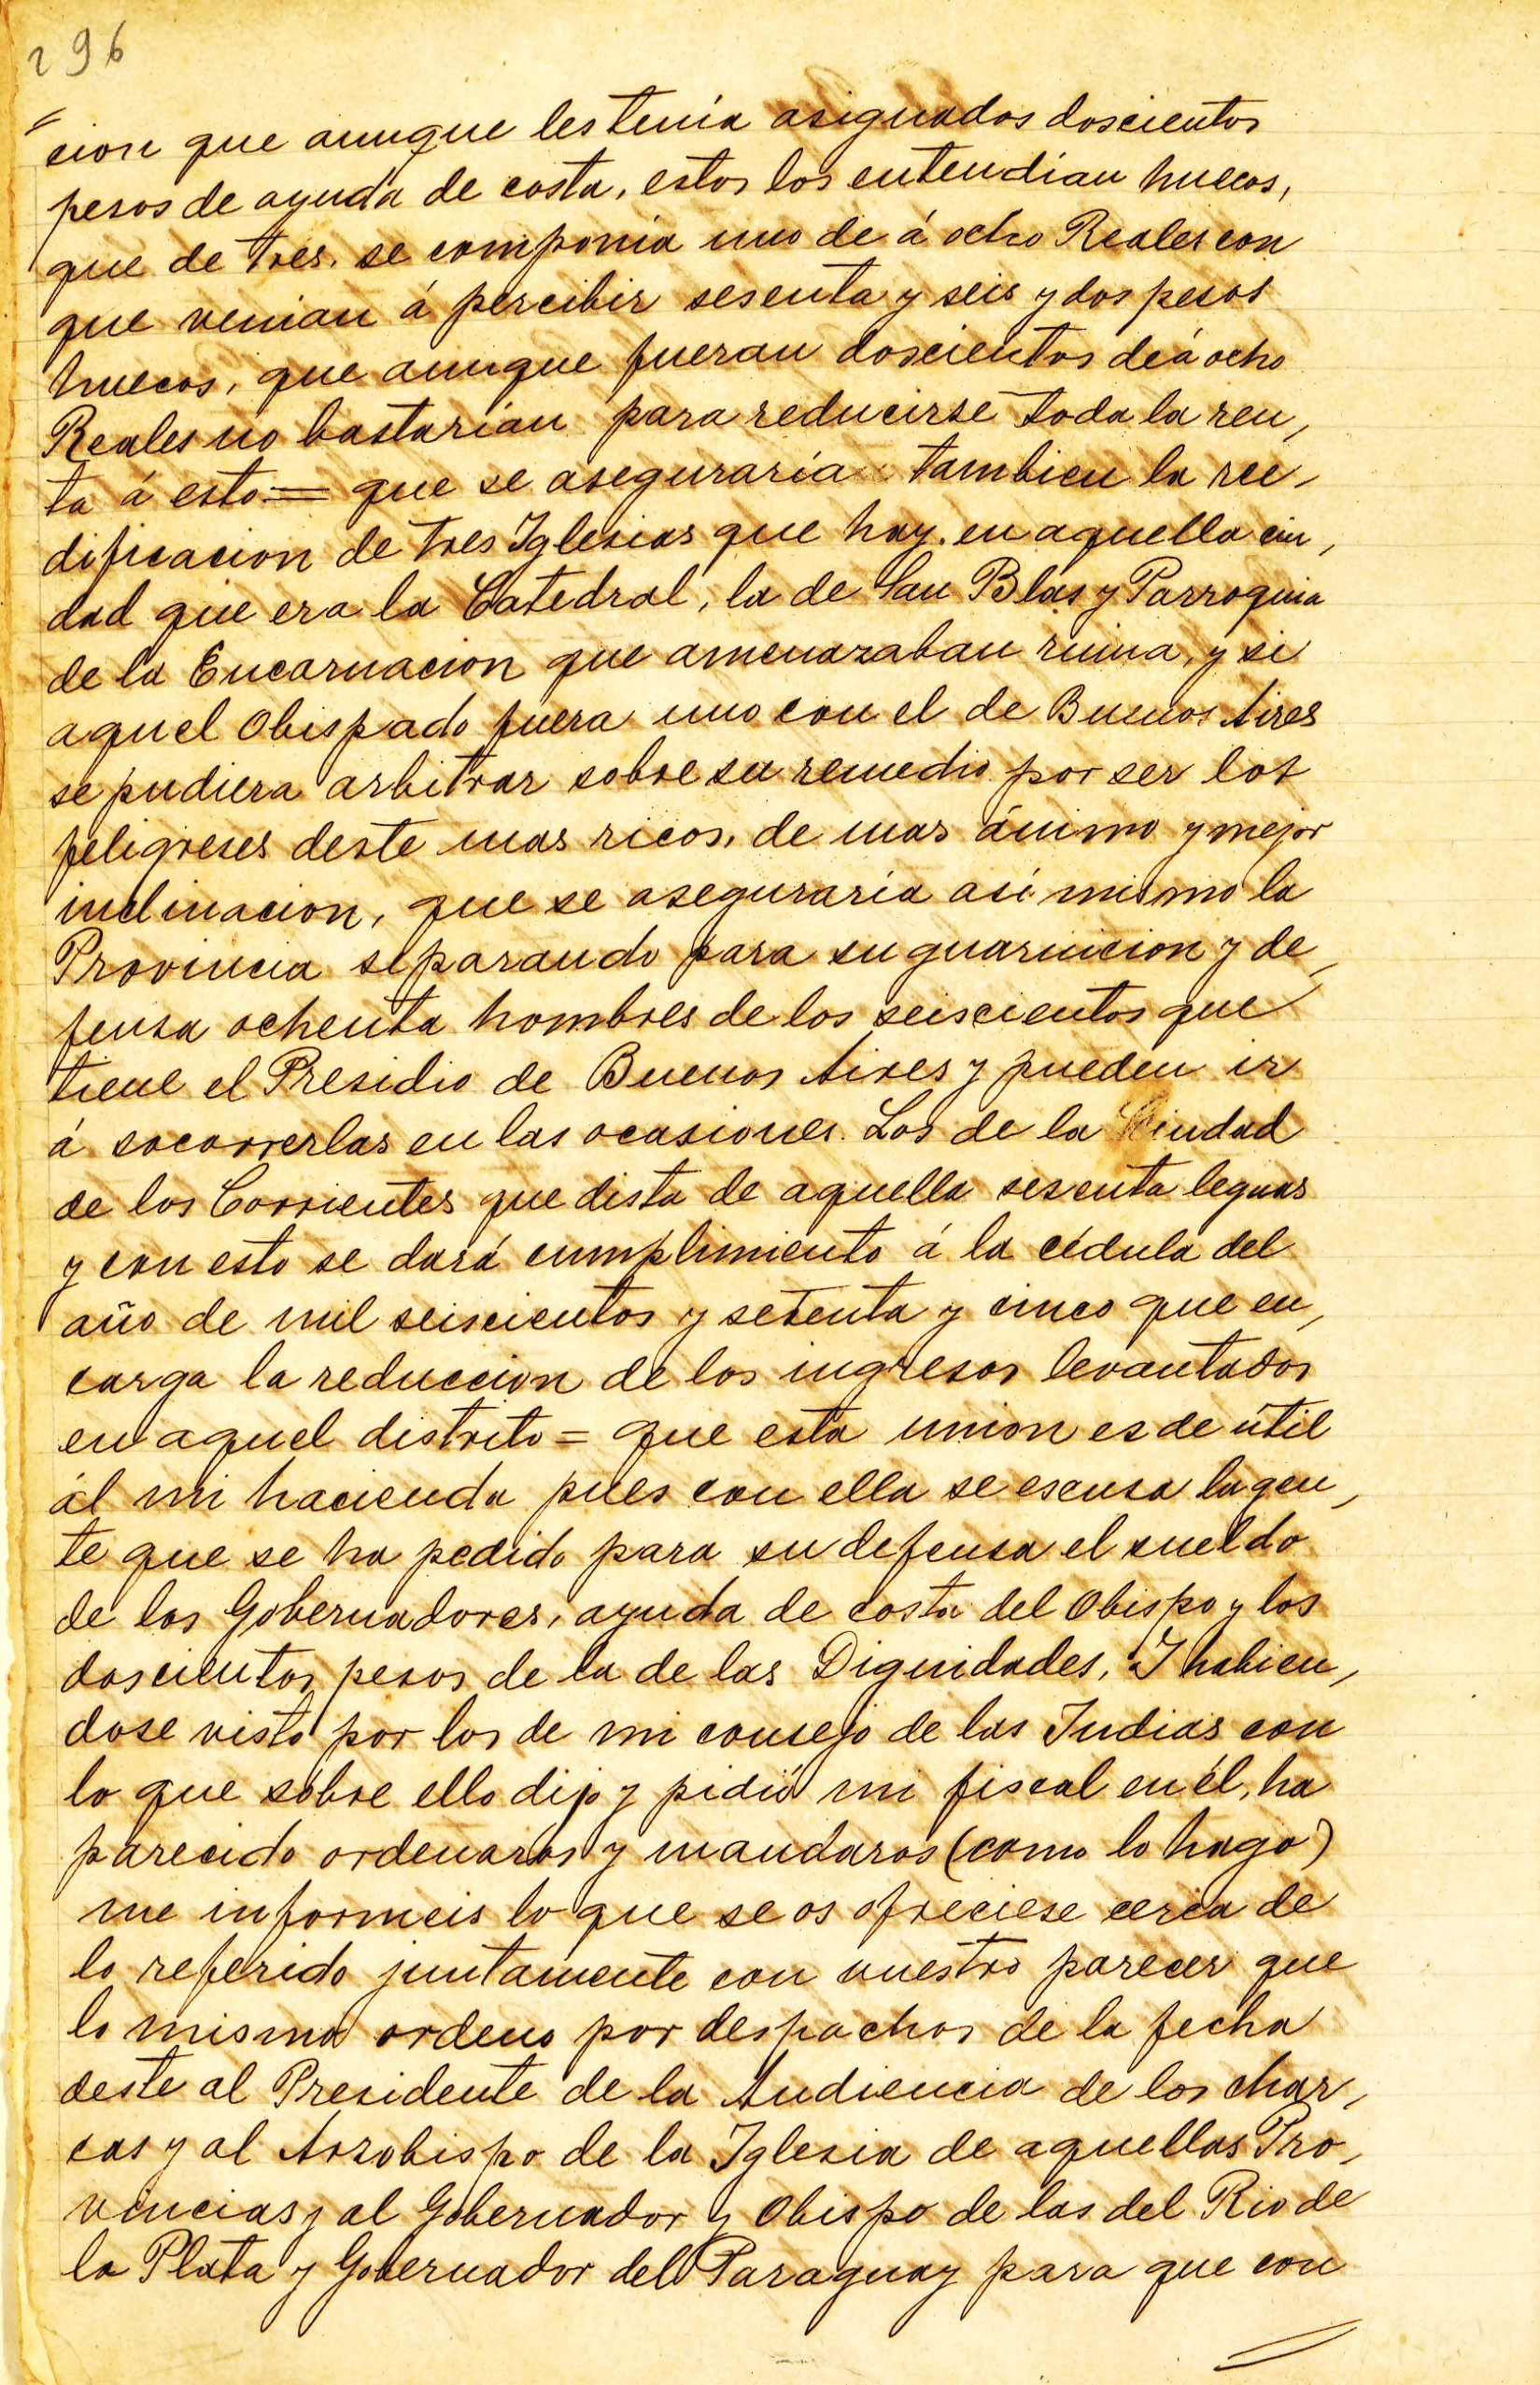 296
cion que aunque les tenía asignados doscientos
pesos de ayuda de costa, estos los entendían huecos,
que de tres, se componía uno de á ocho Reales con
que venian á percibir sesenta y seis y dos pesos
huecos, que aunque fueran doscientos de á ocho
Reales no bastarían para reducirse toda la ren,
ta á esto = que se aseguraría tambien la ree,
dificacion de tres Iglesias que hay en aquella ciu,
dad que era la Catedral, la de San Blas y Parroquia
de la Encarnacion que amenazaban ruina, y si
aquel Obispado fuera uno con el de Buenos Aires
se pudiera arbitrar sobre su remedio por ser los
feligreses deste mas ricos, de mas ánimo y mejor
inclinacion, que se aseguraría asi mismo la
Provincia separando para su guarnicion y de,
fensa ochenta hombres de los seiscientos que
tiene el Presidio de Buenos Aires y pueden ir
á socorrerlas en las ocasiones. Los de la Ciudad
de los Corrientes que dista de aquella sesenta leguas
y con esto se dará cumplimiento á la cédula del
año de mil seiscientos y setenta y cinco que en,
carga la reduccion de los ingresos levantados
en aquel distrito = que esta union es de útil
ál mi hacienda pues con ella se escusa la gen,
te que se ha pedido para su defensa el sueldo
de los Gobernadores, ayuda de costa del Obispo y los
doscientos pesos de la de las Dignidades, I habien,
dose visto por los de mi consejo de las Indias con
lo que sobre ello dijo y pidió mi fiscal en él, ha
parecido ordenaros y mandaros (como lo hago)
me informeis lo que se os ofreciese cerca de
lo referido juntamente con vuestro parecer que
lo mismo ordeno por despachos de la fecha
deste al Presidente de la Audiencia de los char,
cas y al Arzobispo de la Iglesia de aquellas Pro,
vincias y al Gobernador y Obispo de las del Rio de
la Plata y Gobernador del Paraguay para que con